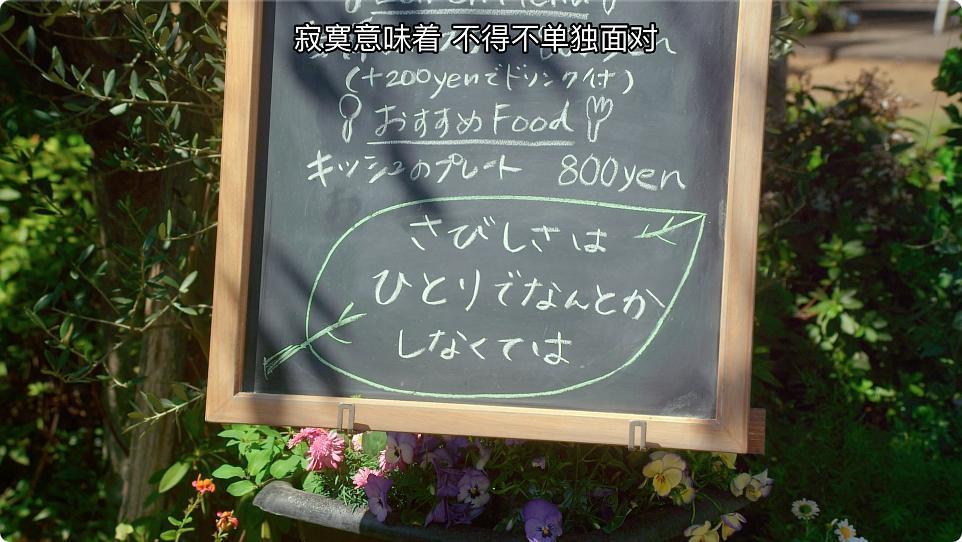 寂寞意味着 不得不单独面对
yen
(+200yenでドリンク付)
おすすめFood
キッシュのプレート 800yen
さびしさは
ひとりでなんとか
しなくては